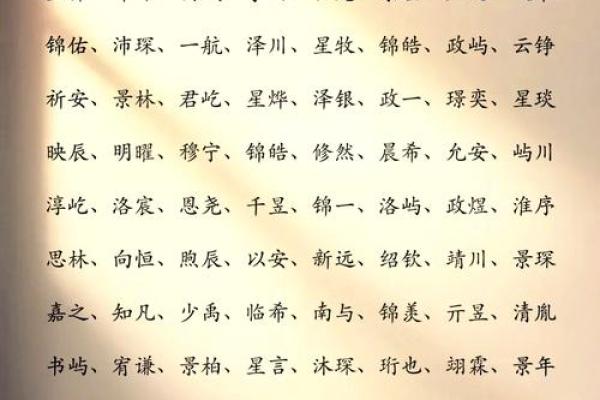 锦佑、沛琛、一航、泽川、星牧、锦皓、政屿、云铮
祈安、景林、君屹、星烨、泽银、政一、璟奕、星琰
映辰、明曜、穆宁、锦皓、修然、晨希、允安、屿川
淳屹、洛宸、恩尧、千昱、锦一、洛屿、政煜、淮序
思林、向恒、煦辰、以安、新远、绍钦、靖川、景琛
嘉之、知凡、少禹、临希、南与、锦羡、亓昱、清胤
书屿、宥谦、景柏、星言、沐琛、珩也、翊霖、景年